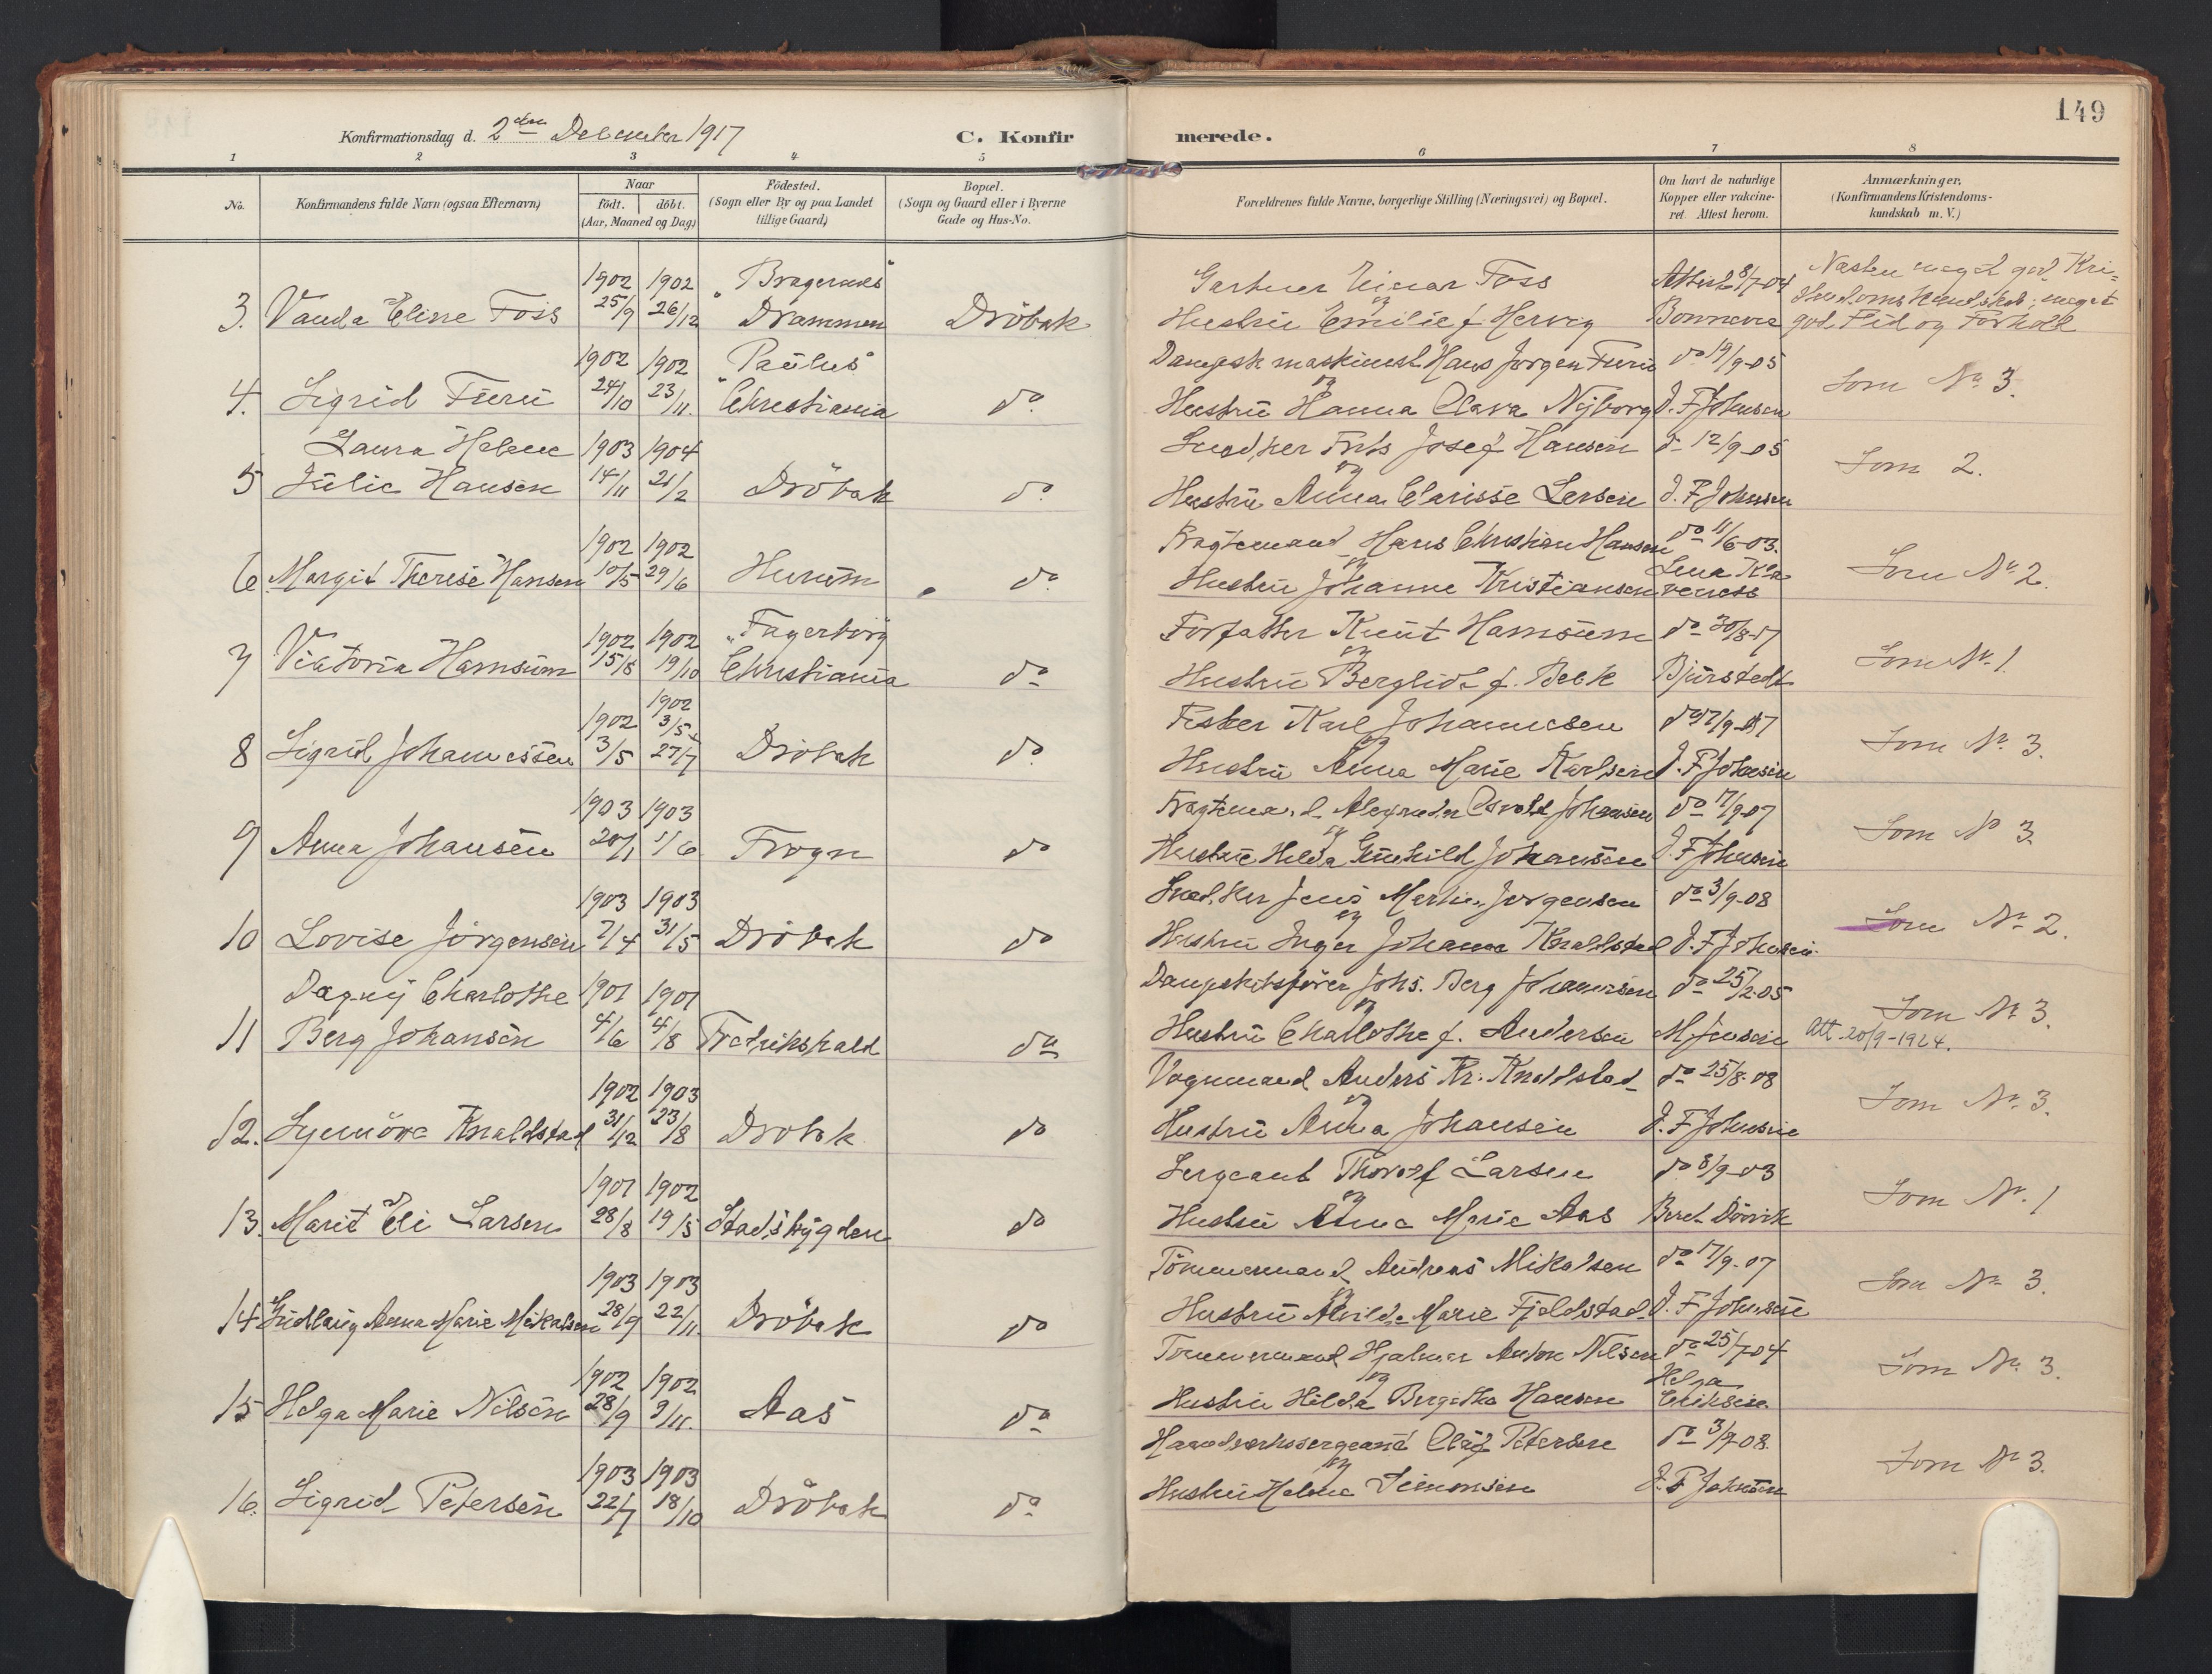 149
Konfirmationsdag d. 2den December 1917
C. Konfir merede.
1 2 3 4 5 6 7 8
No.
Konfirmandens fulde Navn (ogsaa Efternavn)
Naar
födt. döbt.
(Aar, Maaned og Dag)
Födested.
(Sogn eller By og paa Landet
tillige Gaard)
Bopæl.
(Sogn og Gaard eller i Byerne
Gade og Hus-No.
Forældrenes fulde Navne, borgerlige Stilling (Næringsvei) og Bopæl.
Om havt de naturlige
Kopper eller vakcine-
ret. Attest herom.
Anmærkninger.
(Konfirmandens Kristendoms-
kundskab m. V.)
1902 1902 "Bragernes" Gartner Einar Foss Attest 8/7-04 Næsten meget god Kri-
3. Vanda Eline Foss 25/9 26/12 Drammen Dröbak og Hustru Emilie f. Hervig Bonnevie
stendomskundskab; meget
god Flid og Forhold
1902 1902 "Paulus" Dampsk.maskinist Hans Jørgen Furu do 19/9-05
4. Sigrid Furu 24/10 23/11. Christiania do. og Hustru Hanna Clara Nyborg J. F Johnsen Som No 3.
Laura Helene 1903 1904 Snedker Frits Josef Hansen do 12/9-05
5 Julie Hansen 14/11 21/2 Dröbak do. og Hustru Anna Clarisse Larsen J. F Johnsen Som 2.
1902 1902 Fragtemand Hans Christian Hansen do 11/6-03.
6 Margit Therese Hansen 10/5 29/6 Hurum do. og Hustru Johanne Kristiansen Lena Kla
veness Som No 2.
1902 1902 "Fagerborg Forfatter Knut Hamsum do 30/8-17
7 Viktoria Hamsum 15/8 19/10 Christiania do og Hustru Bergliot f. Bech Bjurstedt Som No. 1.
1902
1902 3/5 Fisker Karl Johannesen do 17/9-07
8 Sigrid Johannessen 3/5 27/7 Dröbak do. og Hustru Anna Marie Karlsen J. F Johnsen Som No 3.
1903 1903 Fragtemand Alexander Osvald Johansen do 17/9-07
9 Anna Johansen 20/1 1/6 Frogn do og Hustru Hilda Gunhild Johansen J. F Johnsen Som No 3
1903 1903 Snedker Jens Martin Jørgensen do 3/9-08
10 Lovise Jörgensen 2/4 31/5 Dröbak do og Hustru Inger Johanne Knaldstad J. F Johnsen. Som No 2.
Dagny Charlothe 1901 1901 Dampskibsfører Johs. Berg Johansen do 25/2-05
11 Berg Johansen 4/6 4/8 Fredrikshald do og Hustru Charlothe f. Andersen M Jensen Som No 3.
Att. 20/9-1924.
1902 1903 Vognmand Anders Kr. Knaldstad do 25/8-08
12. Synnöve Knaldstad 31/12 23/8 Dröbak do og Hustru Anna Johansen J. F Johnsen Som No. 3.
1901 1902 Sergeant Thorolf Larsen do 8/9-03
13. Marit Eli Larsen 28/8 19/5 Stadsbygden do og Hustru Anna Marie Aas Som No. 1
1903 1903 Tömmermand Andreas Mikalsen do 17/9-07
14 Gudlaug Anna Marie Mikalsen 28/9 22/11. Dröbak do og Hustru Alvilde Marie Fjeldstad J. F Johnsen Som No 3.
1902 1902 Tömmermand Hjalmar Anton Nilsen do 25/7-04
15 Helga Marie Nilsen 28/9 9/11. Aas do og Hustru Hilda Bergitha Hansen Helga
Eriksen. Som No. 3.
1903 1903 Haandverkssergeant Olaf Petersen do 3/9-08.
16. Sigrid Petersen 22/7 18/10 Dröbak do og Hustru Helene Simonsen J. F Johnsen Som No 3.